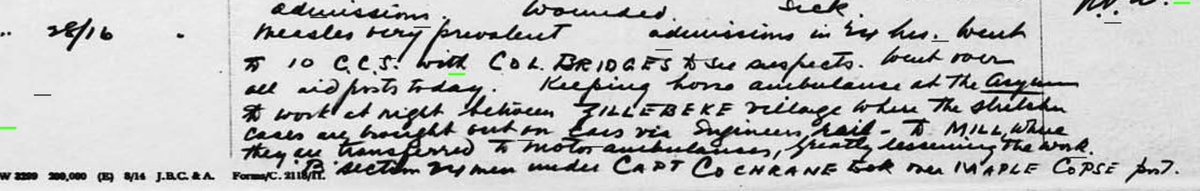 admissions wounded sick
28/16 Measles very prevalent admissions in 24 hrs. Went
to 10 C.C.S. with COL. BRIDGES to see suspects. Went over
all aid posts today. Keeping horse ambulance at the Asylum
to work at night between ZILLEBEKE village where the stretcher
cases are brought out on cars via Engineers rail - to MILL, where
they are transferred to motor ambulances, greatly lessening the work.
B section 24 men under CAPT COCHRANE took over MAPLE COPSE post.
W 3299 200,000 (E) 8/14 J.B.C. & A. Forms/C. 2118/11.